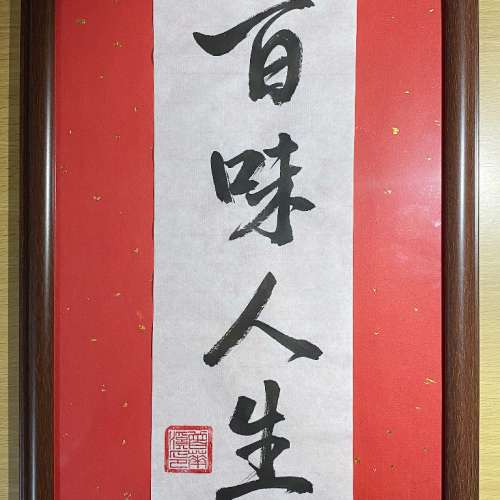 百味人生